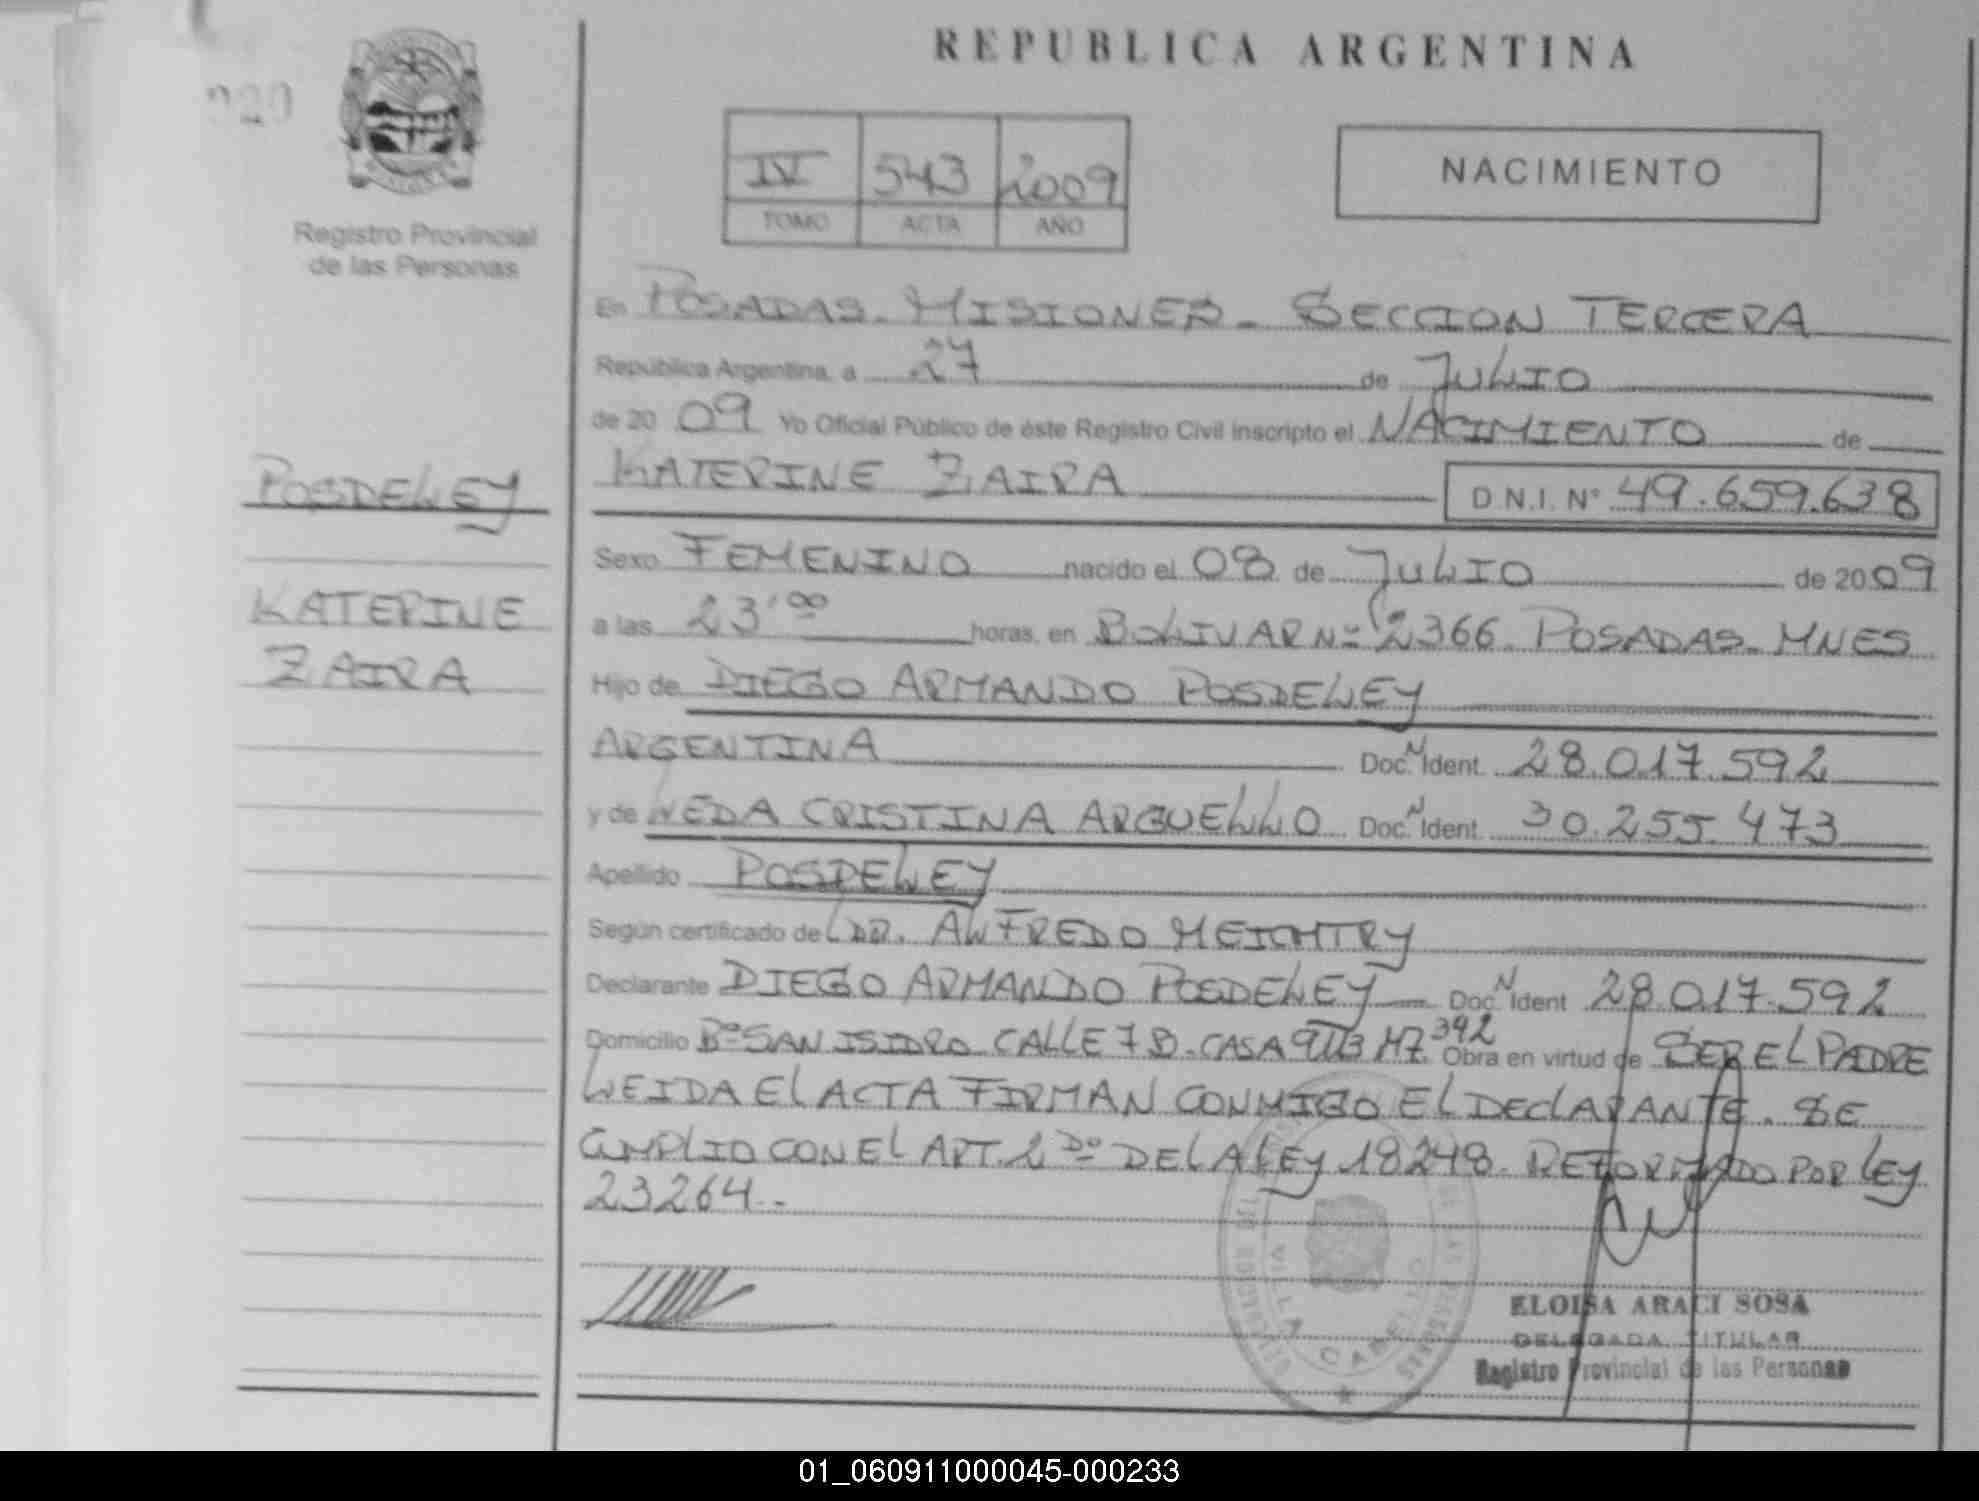 REPUBLICA ARGENTINA
020
IV 543 2009
TOMO ACTA AÑO
NACIMIENTO
Registro Provincial
de las Personas
En POSADAS - MISIONES - SECCION TERCERA
República Argentina, a 27 de JULIO
de 20 09 Yo Oficial Público de éste Registro Civil inscripto el NACIMIENTO de
KATERINE ZAIRA D.N.I. N° 49.659.638
POSDELEY
KATERINE
ZAIRA
Sexo FEMENINO nacido el 08 de JULIO de 20 09
a las 23'00 horas, en BOLIVAR Nº 2366. POSADAS - MNES
Hijo de DIEGO ARMANDO POSDELEY
ARGENTINA Doc. N Ident. 28.017.592
y de LEDA CRISTINA ARGUELLO Doc. N Ident. 30.255.473
Apellido POSDELEY
Según certificado de DR. ALFREDO MEICHTRY
Declarante DIEGO ARMANDO POSDELEY Doc. N Ident 28.017.592
Domicilio Bº SAN ISIDRO CALLE 7 B. CASA MZ 392 Obra en virtud de SER EL PADRE
LEIDA EL ACTA FIRMAN CONMIGO EL DECLARANTE. SE
CUMPLIO CON EL ART. 2 Do DE LA LEY 18248. REFORMADO POR LEY
23264.-
VILLA CABELLO
ELOISA ARACI SOSA
DELEGADA TITULAR
Registro Provincial de las Personas
01_060911000045-000233